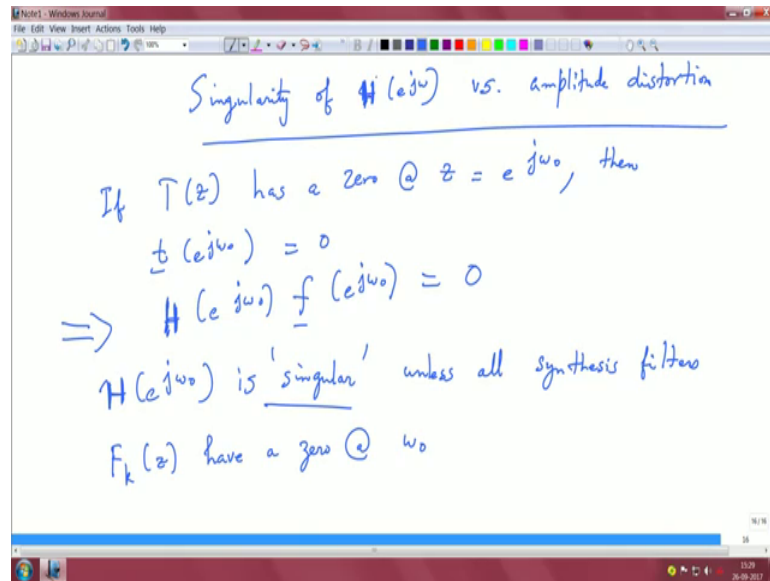 Note1 - Windows Journal
File Edit View Insert Actions Tools Help
100%
B I
Singularity of H(e^{jω}) vs. amplitude distortion
If T(z) has a zero @ z = e^{jω₀}, then
t(e^{jω₀}) = 0
⇒ H(e^{jω₀}) f(e^{jω₀}) = 0
H(e^{jω₀}) is 'singular' unless all synthesis filters
F_k(z) have a zero @ ω₀
16/16
16
15:29
26-09-2017